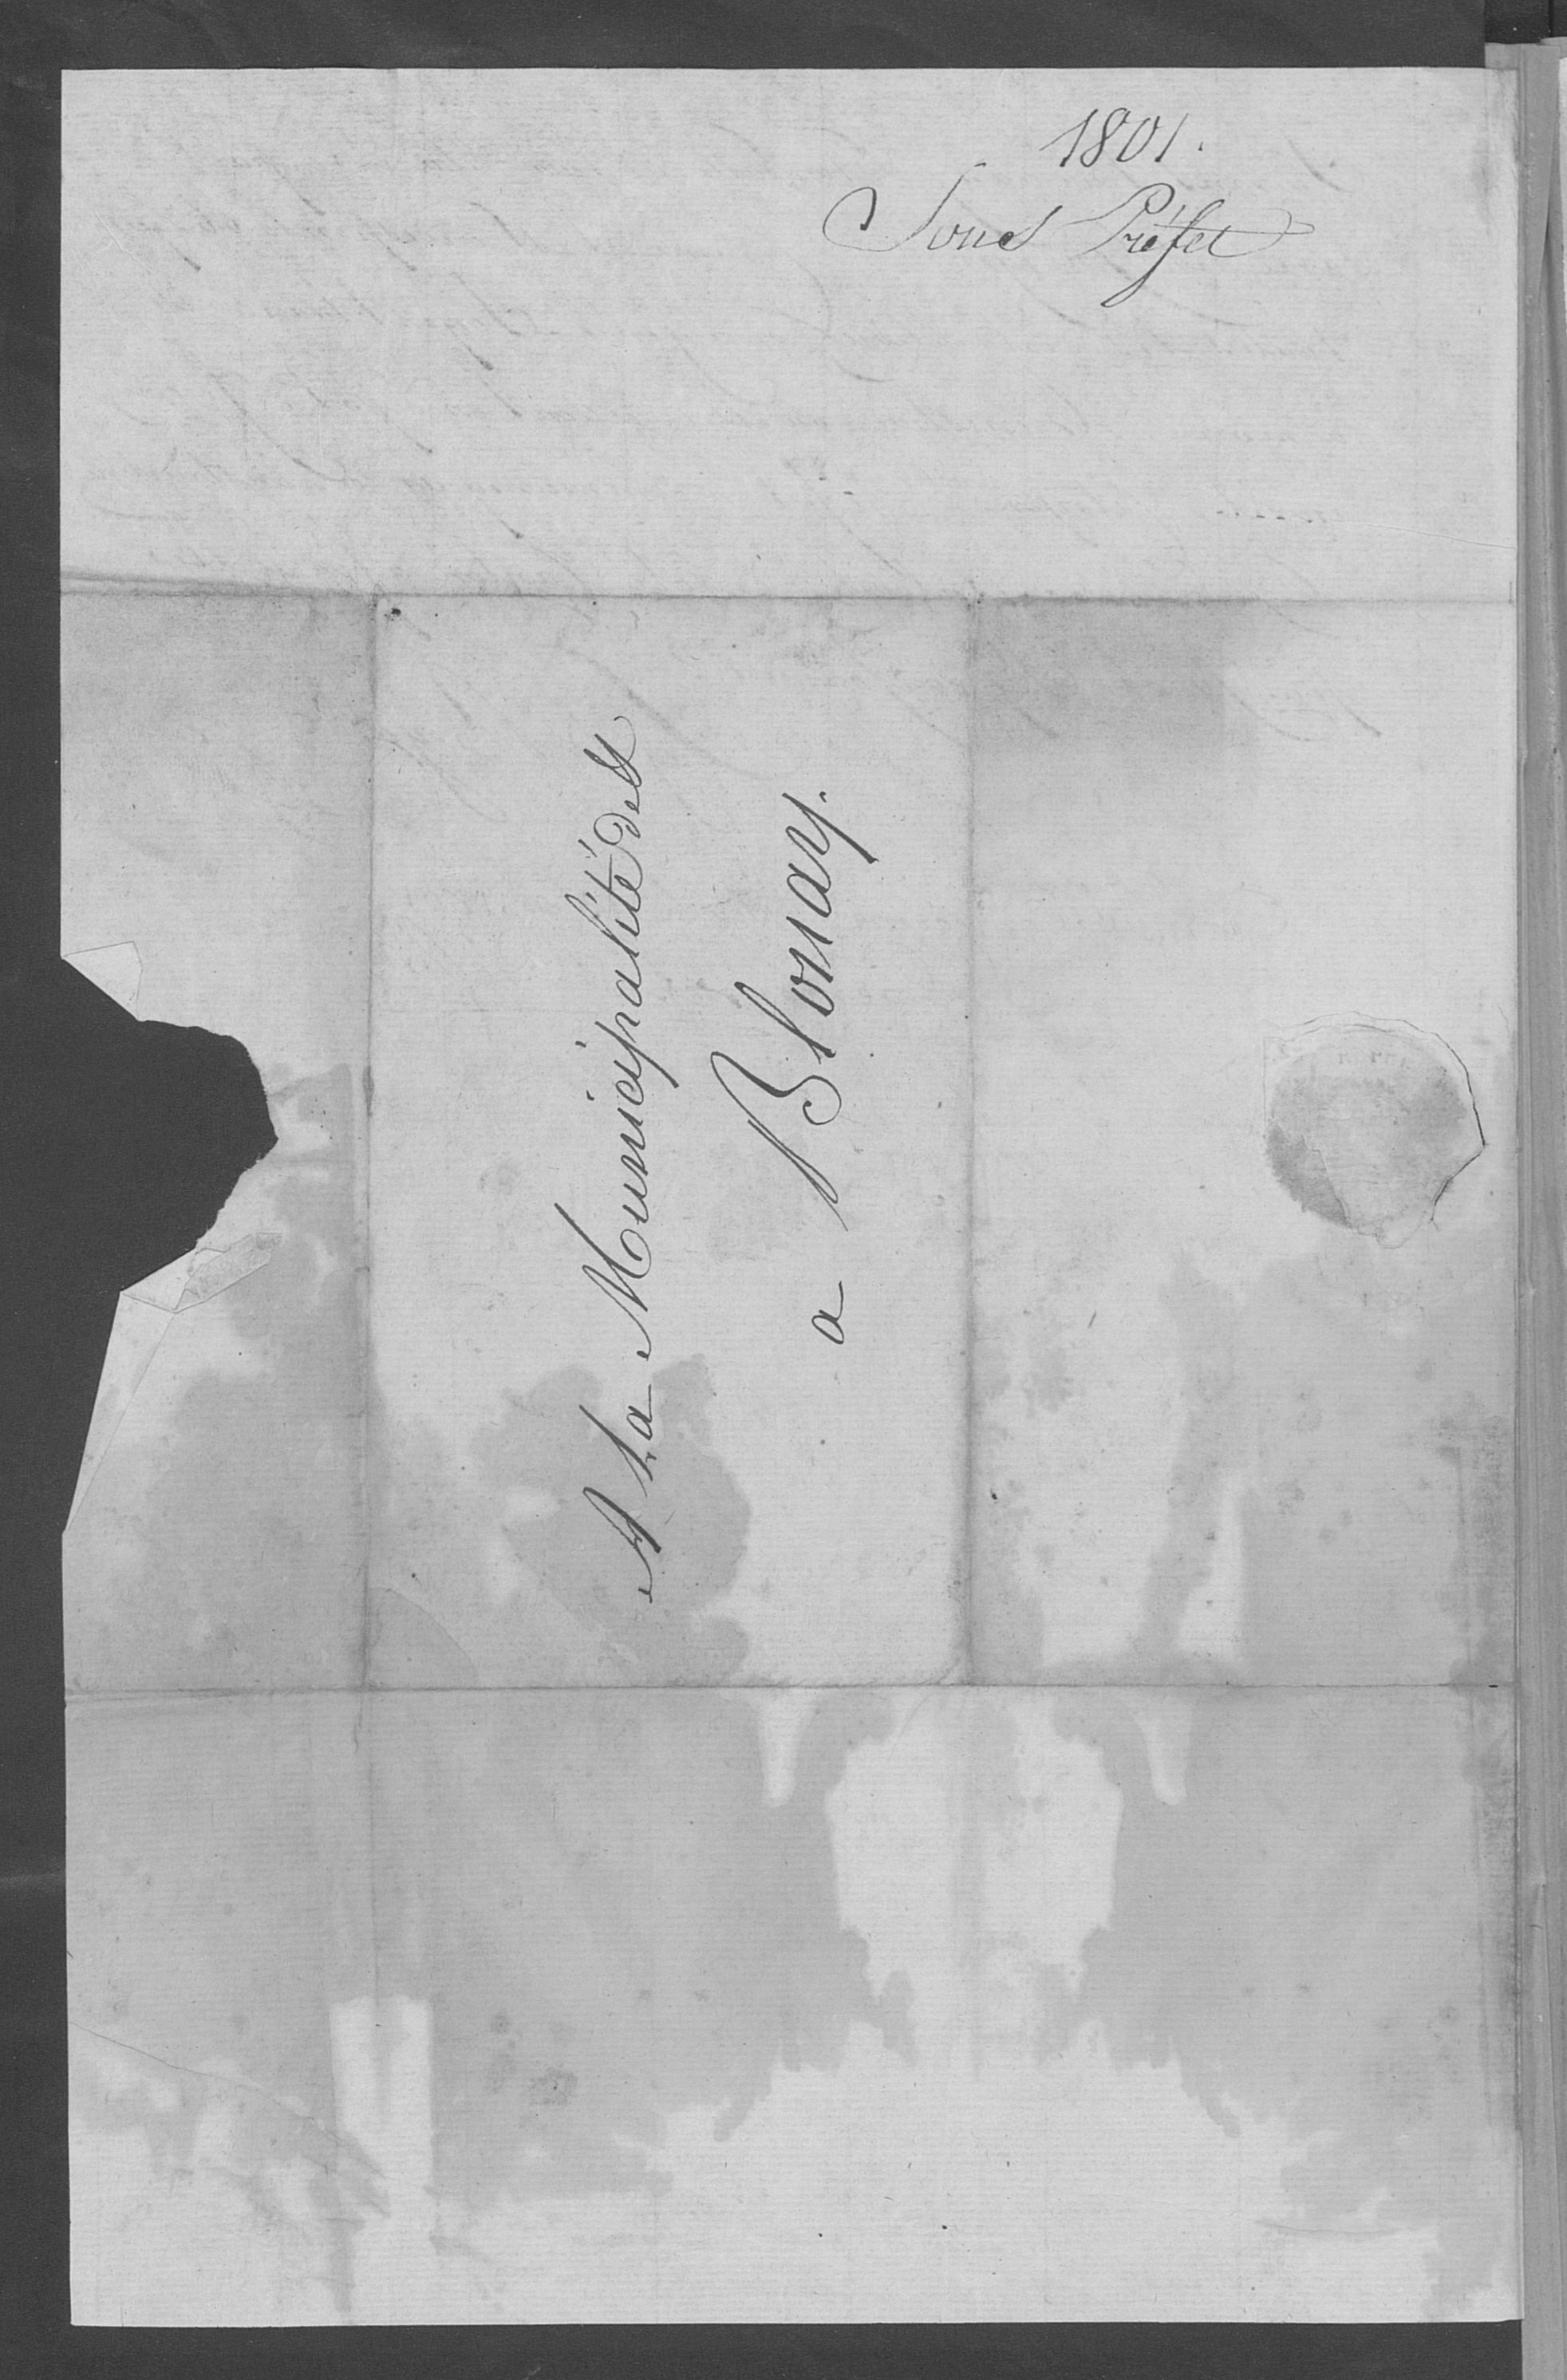 1801.
Sous Préfet
A la Municipalité de
a Blonay.